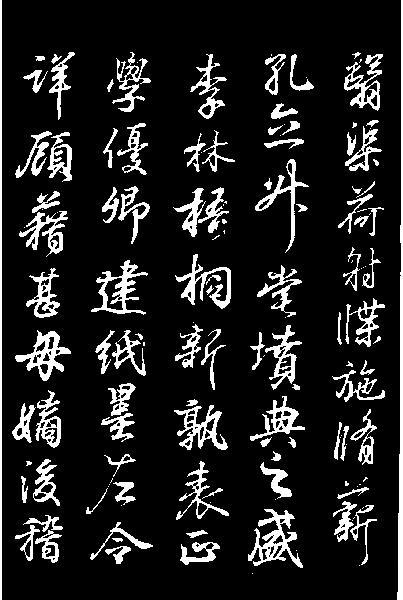 翳渠荷射牒施脩薪
孔立升堂墳典之盛
李林梧桐新孰表正
學優卿建紙墨左令
詳顧藉甚毋嫡後稽